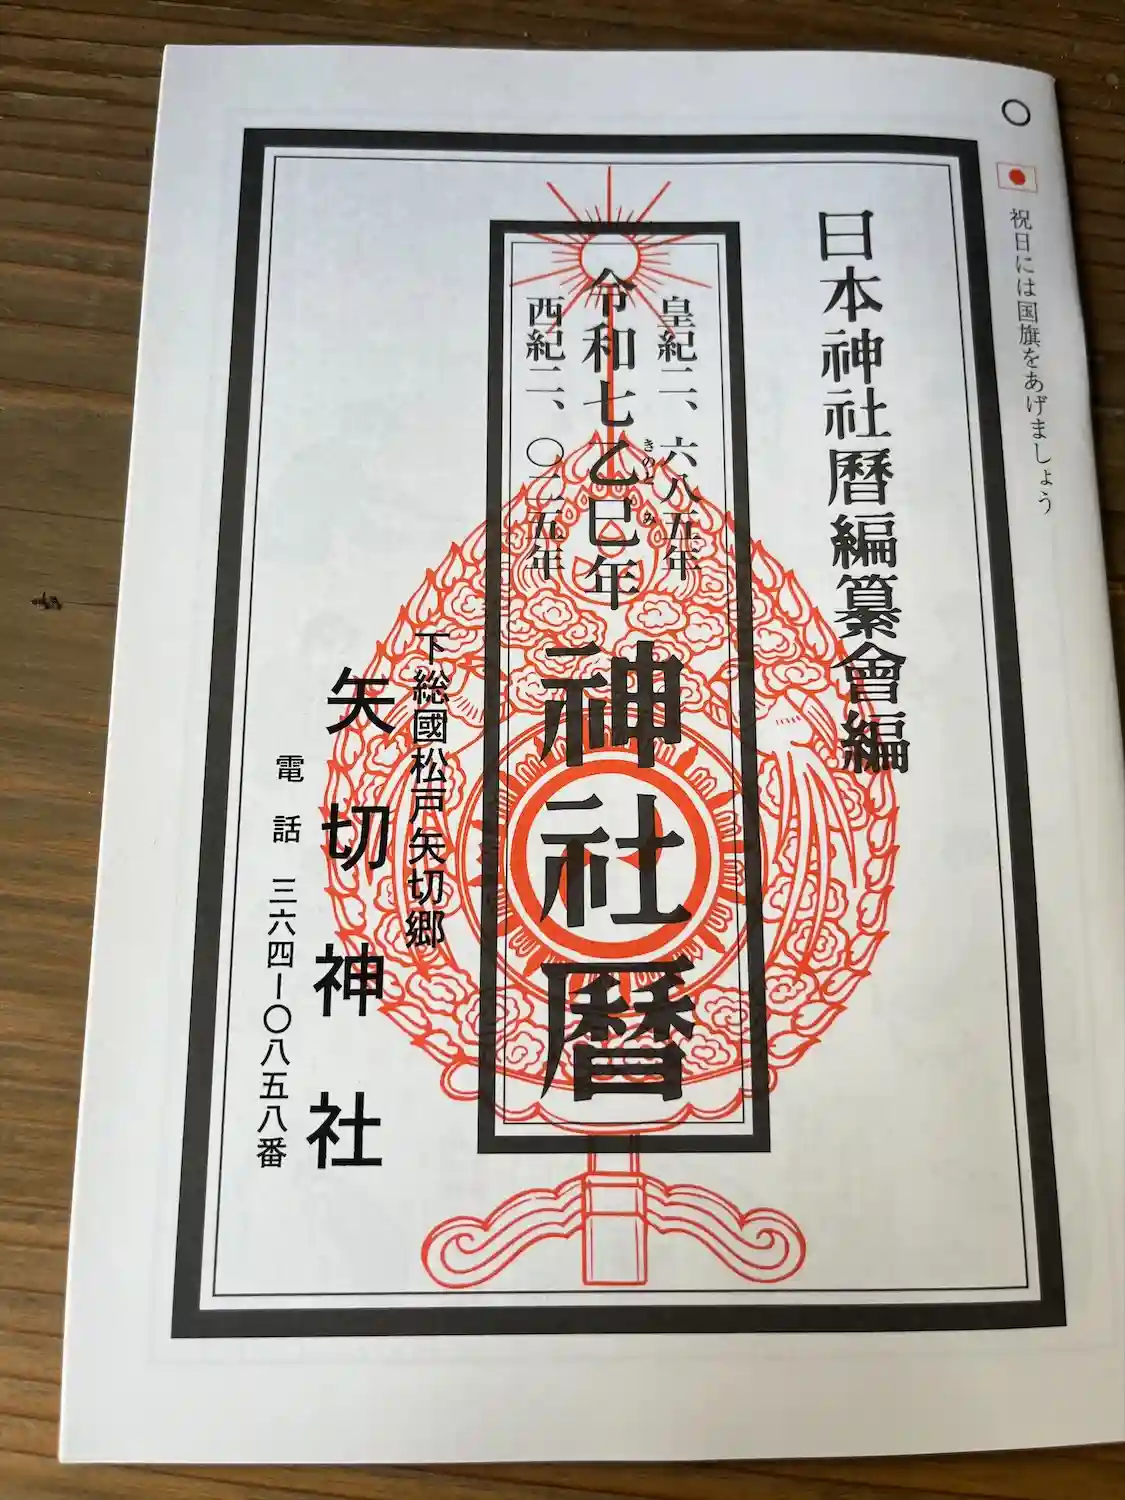 ○
祝日には国旗をあげましょう
日本神社暦編纂會編
皇紀二、六八五年
令和七乙巳年
きのと み
西紀二、〇二五年
神社暦
下総國松戸矢切郷
矢切神社
電話 三六四ー〇八五八番